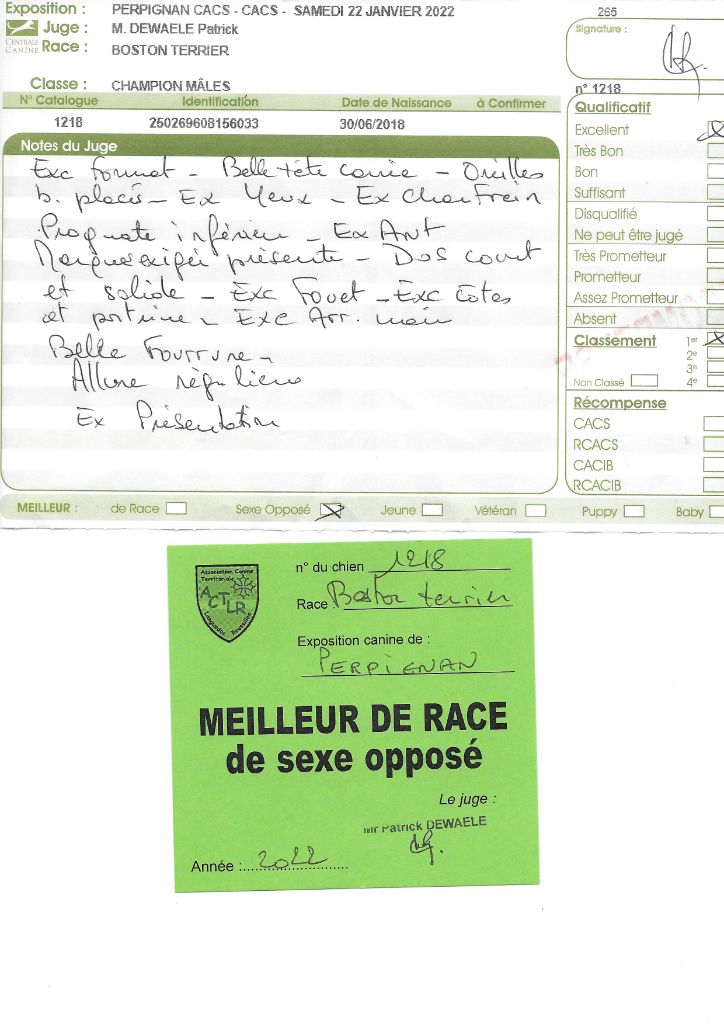 Exposition : PERPIGNAN CACS - CACS - SAMEDI 22 JANVIER 2022
265
Juge : M. DEWAELE Patrick
Signature :
CENTRALE CANINE
Race : BOSTON TERRIER
Classe : CHAMPION MÂLES
n° 1218
N° Catalogue Identification Date de Naissance à Confirmer
1218 250269608156033 30/06/2018
Notes du Juge
Exc Format - Belle tête carrée - Oreilles
b. placés - Ex Yeux - Ex Chanfrein
Prognate inférieur - Ex Ant
Marques exigées présente - Dos court
et solide - Exc Fouet - Exc Côtes
et poitrine - Exc Arr. main
Belle Fourrure -
Allure régulière
Ex Présentation
Qualificatif
Excellent
Très Bon
Bon
Suffisant
Disqualifié
Ne peut être jugé
Très Prometteur
Prometteur
Assez Prometteur
Absent
Classement 1er
2e
3e
Non Classé 4e
Récompense
CACS
RCACS
CACIB
RCACIB
MEILLEUR : de Race Sexe Opposé Jeune Vétéran Puppy Baby
Association Canine
Territoriale
ACTLR
Languedoc Roussillon
n° du chien 1218
Race : Boston terrier
Exposition canine de :
PERPIGNAN
MEILLEUR DE RACE
de sexe opposé
Le juge :
Mr Patrick DEWAELE
Année : 2022